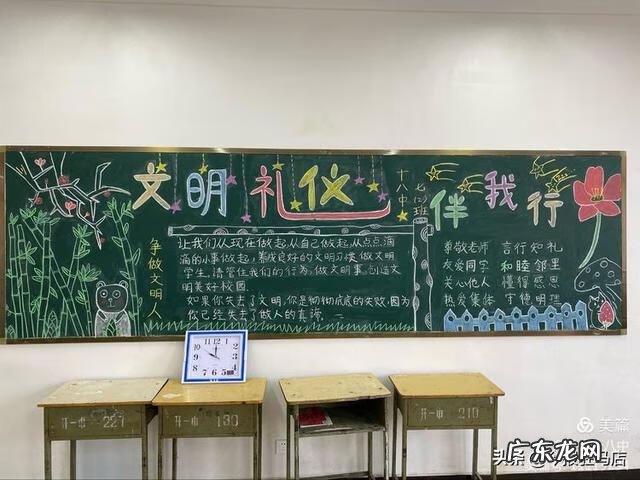 文明礼仪
十八中
七(2)班
伴我行
争做文明人
让我们从现在做起,从自己做起,从点点滴
滴的小事做起,养成良好的文明习惯,做文明
学生,请管住我们的行为,做文明事,创造文
明美好校园.
如果你失去了文明,你是彻彻底底的失败.因为
你已经失去了做人的真谛.
尊敬老师
友爱同学
关心他人
热爱集体
言行知礼
和睦邻里
懂得感恩
守德明理
12
1
2
3
4
5
6
7
8
9
10
11
开一中 227
开一中 130
开一中 210
美篇
八中
头条
马店
广东龙网